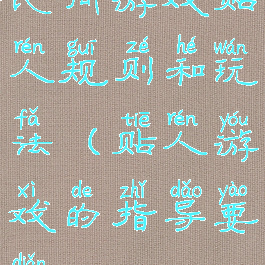 民间游戏贴
rén guī zé hé wán
人规则和玩
fǎ tiē rén yóu
法(贴人游
xì de zhǐ dǎo yào
戏的指导要
diǎn